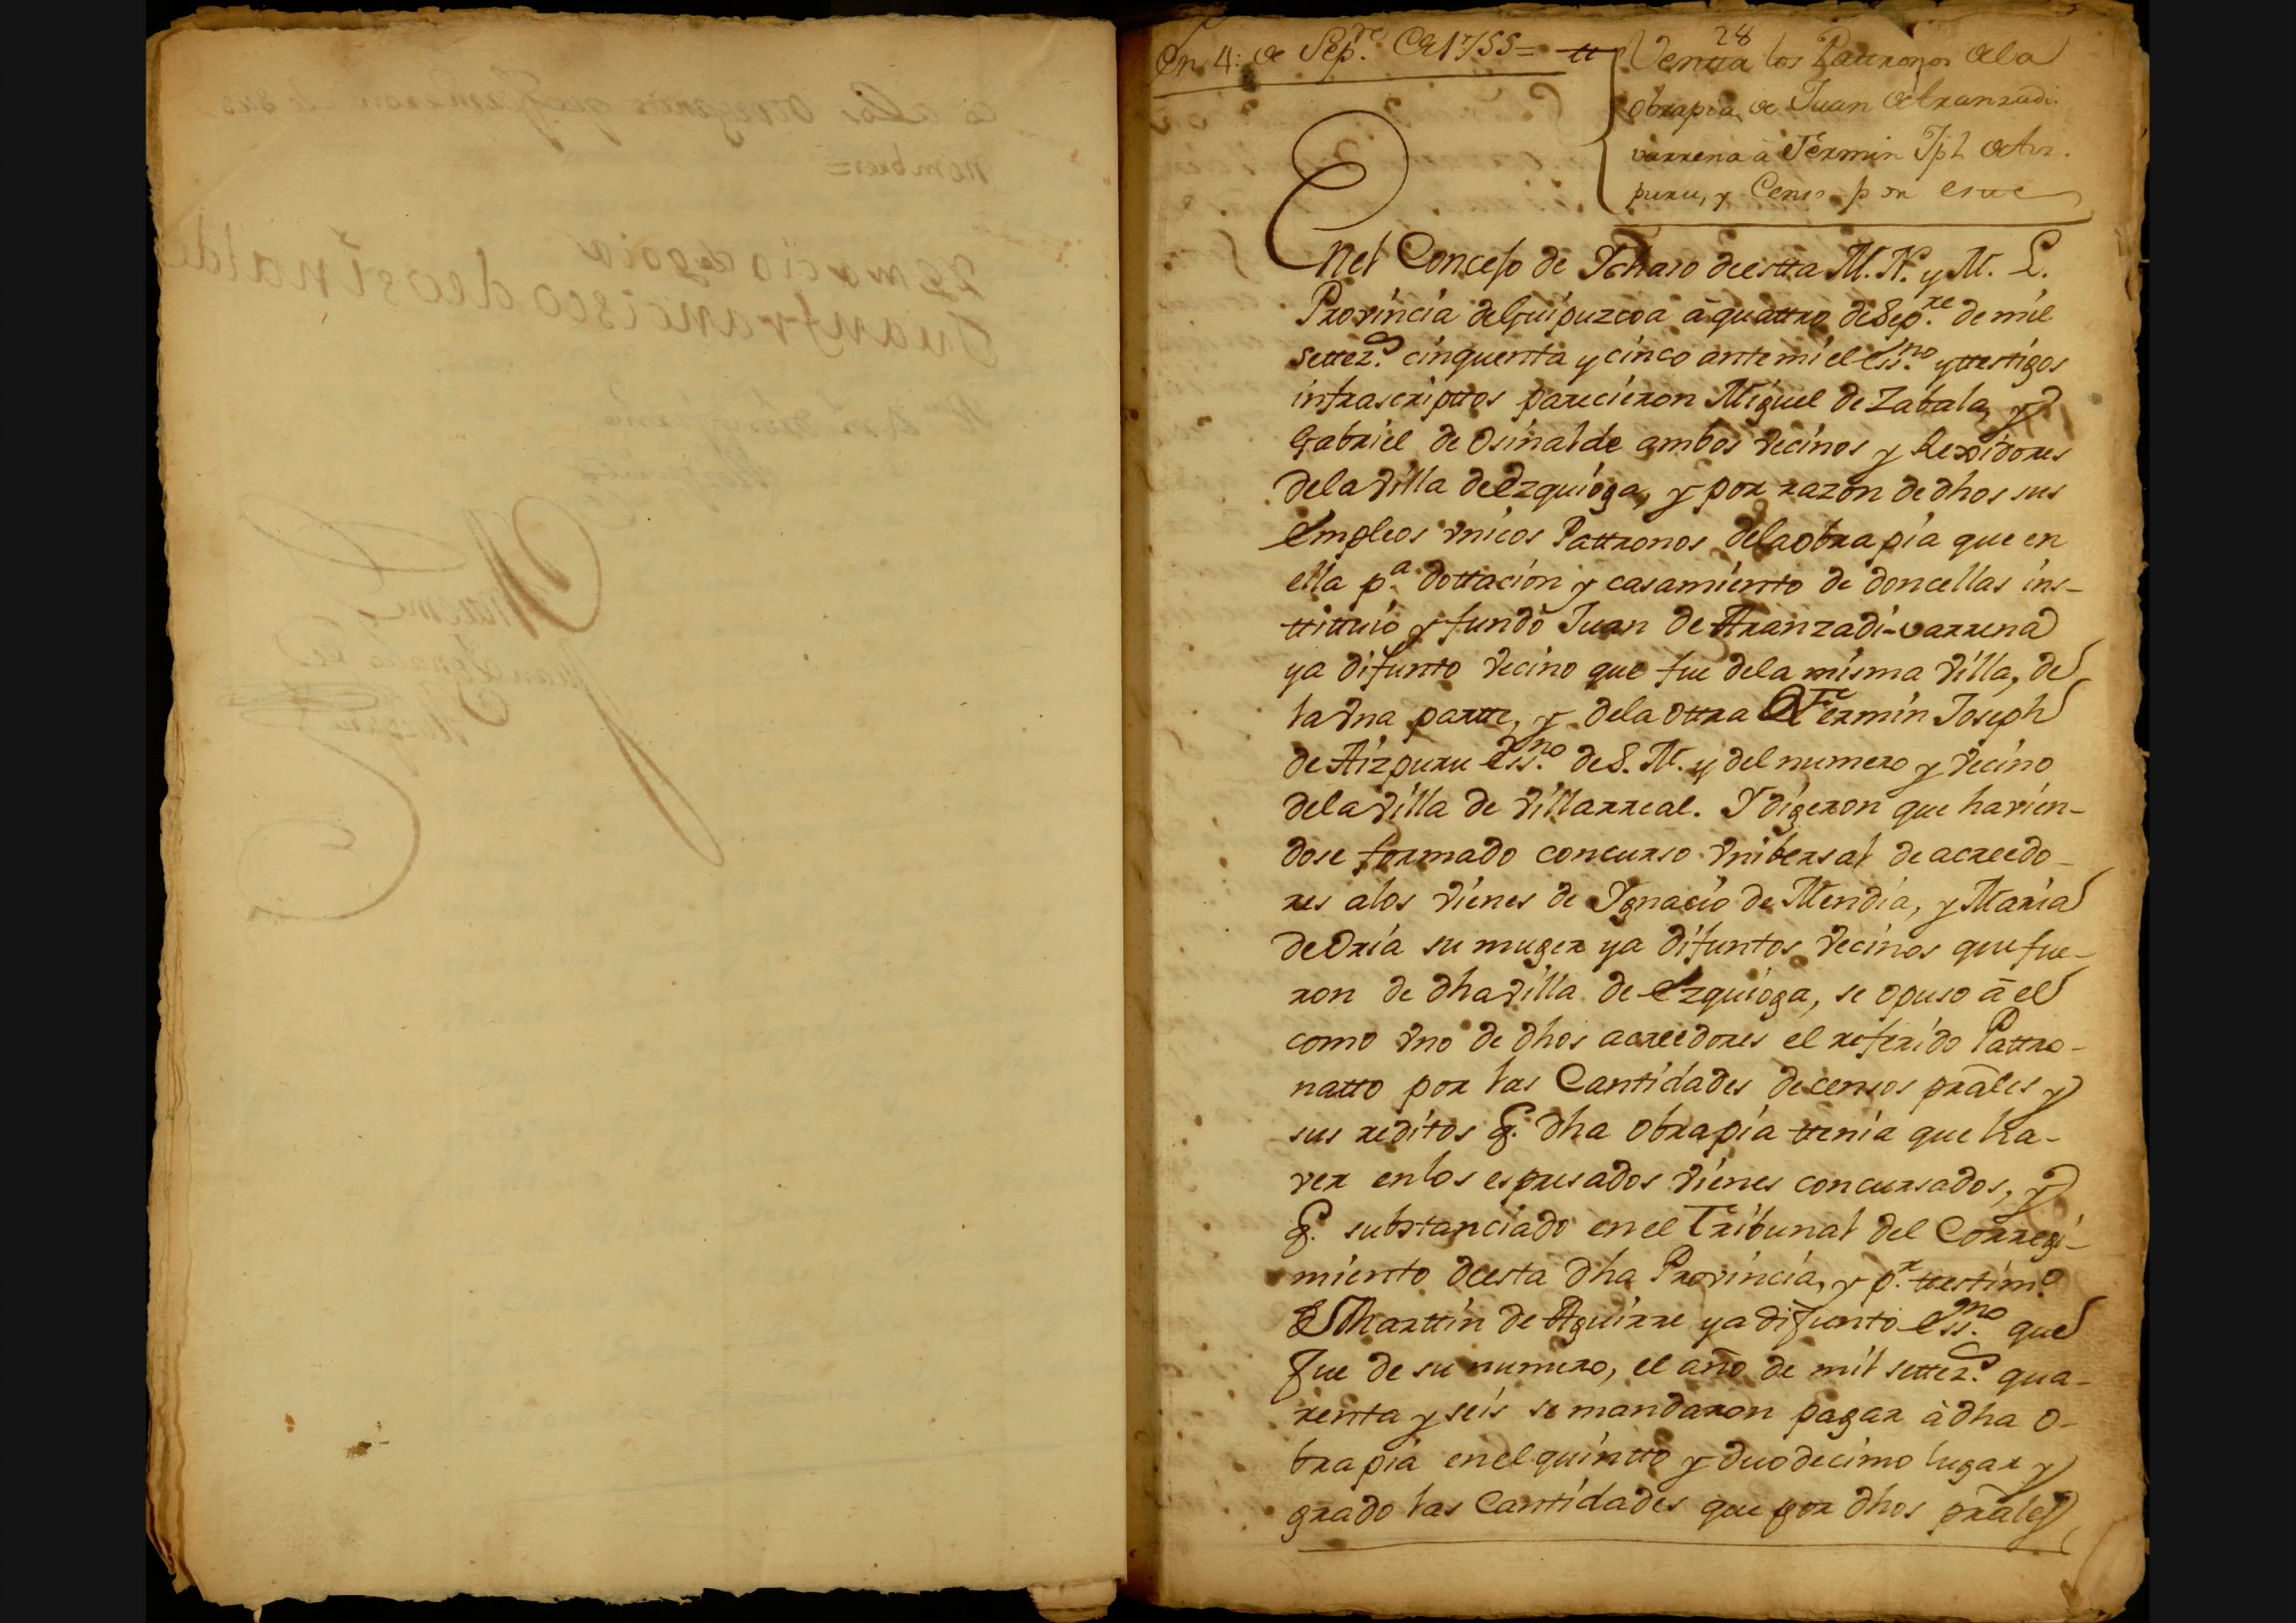 28
En 4: de Sep.re de 1755=
Ventta los Pattronos dela
Obrapia de Juan de Aranzadi-
varrena à Fermin Jph de Aiz-
puru, y Censo por este
Enel Concejo de Ichaso deestta M. N. y M. L.
Provincia deGuipuzcoa à quattro deSep.re de mil
settez.s cinquenta y cinco ante mi el ess.no y ttestigos
infrascripttos parecieron Miguel de Zabala, y
Gabriel de Osinalde ambos vecinos y Rexidores
dela villa deEzquioga, y por razon de dhos sus
Empleos vnicos Pattronos dela obra pia que en
ella p.a dottacion y casamiento de doncellas ins-
ttittuió y fundò Juan de Aranzadi-varrena
ya difunto vecino que fue dela misma villa, de
la vna partte, y dela ottra Fermin Joseph
de Aizpuru ess.no de S. M. y del numero y vecino
dela villa de villarreal. Y digeron que havien-
dose formado concurso vnibersal de acreedo-
res alos vienes de Ygnacio de Mendia, y Maria
de Oria su muger ya difuntos vecinos que fue-
ron de dha villa de Ezquioga, se opuso à el
como vno de dhos acreedores el referido Pattro-
natto por las Cantidades de censos prãles y
sus reditos q. dha obra pia ttenia que ha-
ver enlos espresados vienes concursados, y
q. substanciado en el Tribunal del Corregi-
miento deesta dha Provincia, y p.r ttestim.o
Marttin de Aguirre ya difunto ess.no que
fue de su numero, el año de mil settez.s qua-
renta y seis se mandaron pagar à dha o-
bra pia enel quintto y duodecimo lugar y
grado las Cantidades que por dhos prãles